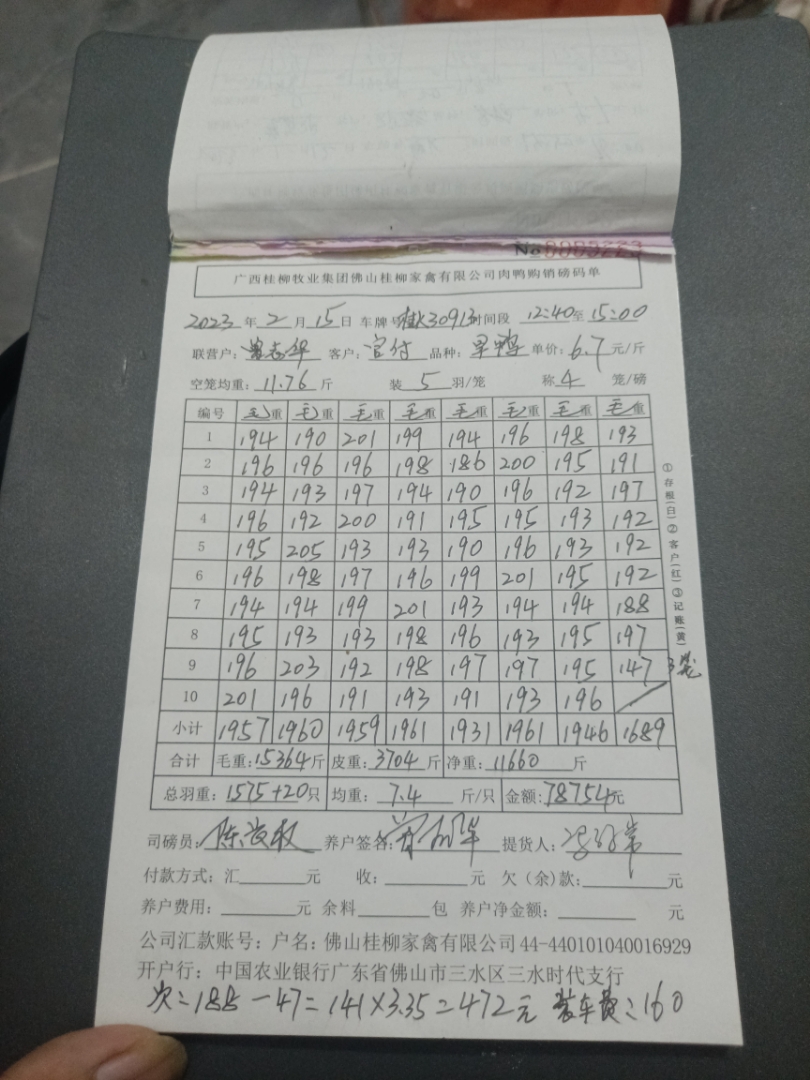 广西桂柳牧业集团佛山桂柳家禽有限公司肉鸭购销磅码单
2023年2月15日 车牌号 30913 时间段 12:40至15:00
联营户: 客户: 品种: 单价:6.7元/斤
空笼均重:11.76斤 装5羽/笼 称4笼/磅
编号 毛重 毛重 毛重 毛重 毛重 毛重 毛重 毛重
1 194 190 201 199 194 196 198 193
2 196 196 196 198 186 200 195 191
3 194 193 197 194 190 196 192 197
4 196 192 200 191 195 195 193 192
5 195 205 193 193 190 196 193 192
6 196 198 197 196 199 201 195 192
7 194 194 199 201 193 194 194 188
8 195 193 193 198 196 193 195 197
9 196 203 192 198 197 197 195 147 3笼
10 201 196 191 193 191 193 196
小计 1957 1960 1959 1961 1931 1961 1946 1689
合计 毛重:15364斤 皮重:3704斤 净重:11660斤
总羽重:1575+20只 均重:7.4斤/只 金额:78754元
司磅员: 养户签名: 提货人:
付款方式:汇 元 收: 元 欠(余)款: 元
养户费用: 元 余料 包 养户净金额: 元
公司汇款账号:户名:佛山桂柳家禽有限公司44-440101040016929
开户行:中国农业银行广东省佛山市三水区三水时代支行
次=188-47=141×3.35=472元 装车费=160
①存根(白)②客户(红)③记账(黄)